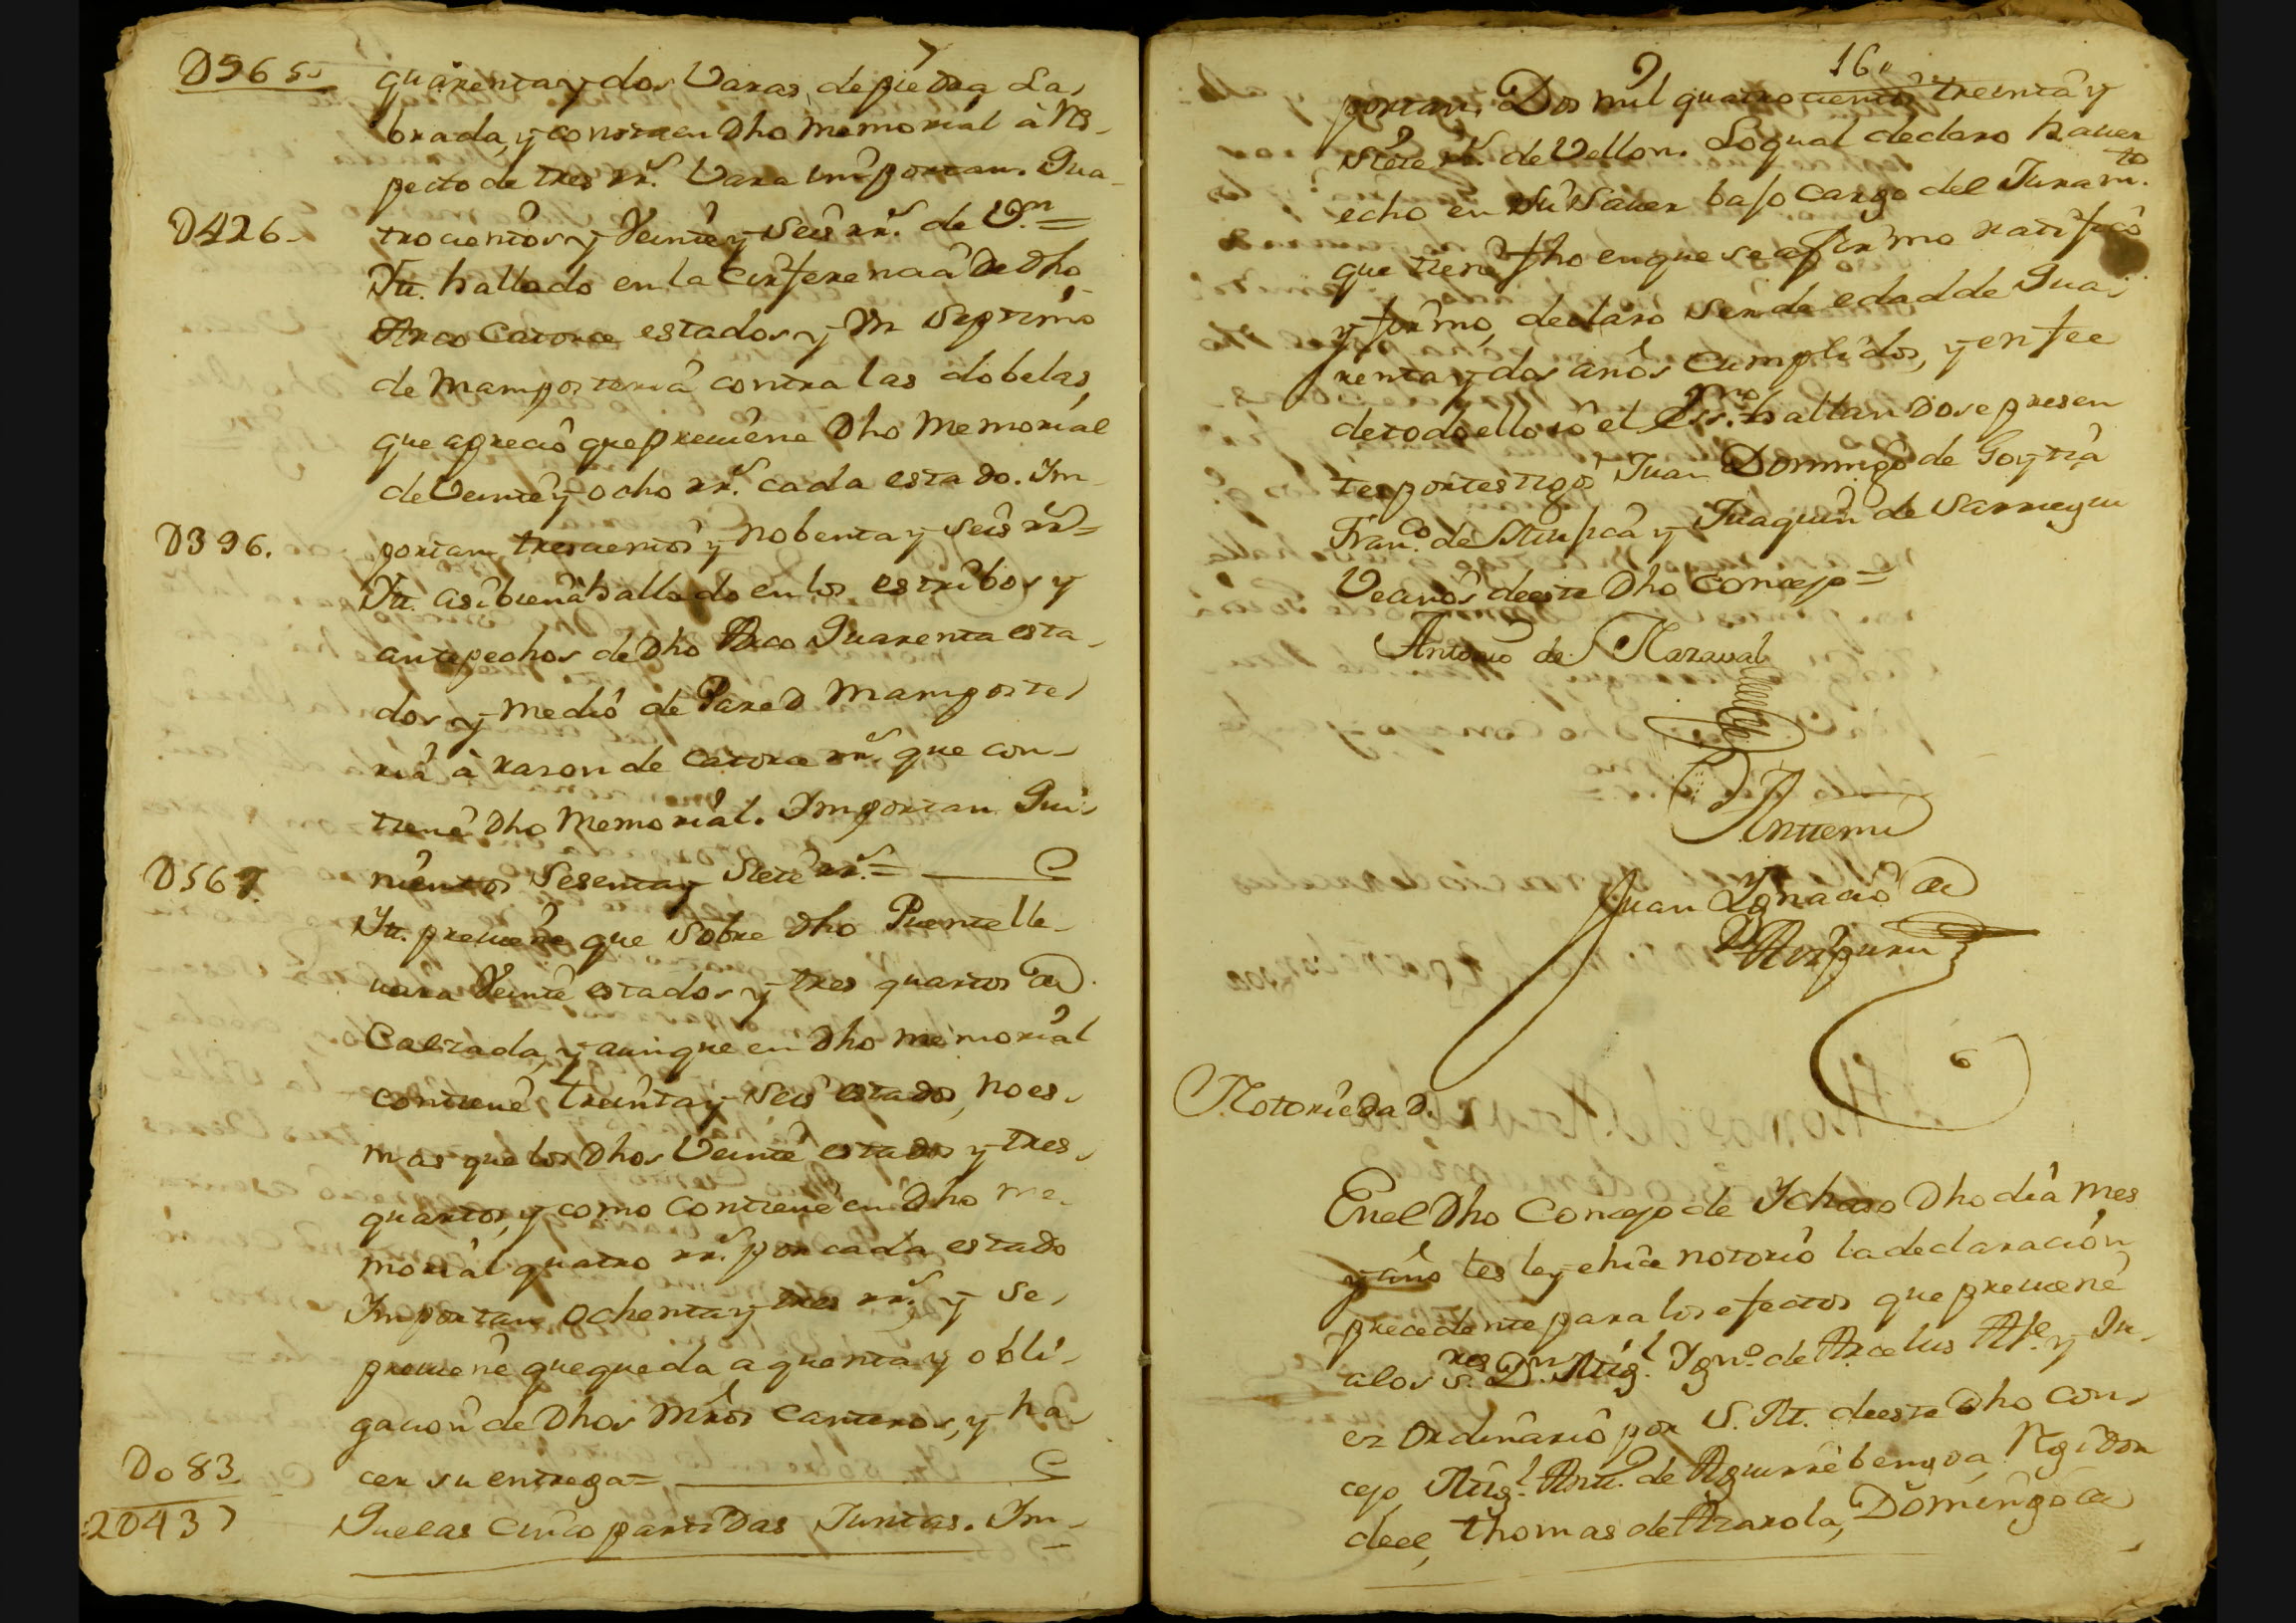 D965
quarenta y dos Varas, de piedra La,
brada, y consta en Dho Memorial à Res-
pecto de tres rr.s Vara importan. Qua-
D426.
trocientos y Veinte y Seis rr.s de V.n =
Ytt. hallado en la Cirferencia De Dho
Arco Catorce estados y Un Septimo
de Mamposteria contra las dobelas,
que aprecio que previene Dho Memorial
de Veinte y ocho rr.s cada estado. Im-
D396.
portan trescientos y Nobenta y Seis rr.s =
Ytt. asibien à hallado en los estribos y
antepechos de Dho Arco Quarenta esta-
dos y Medio de Pared Mamposte,
ria à rason de Catorce rr.s que con-
tiene Dho Memorial. Importan Qui-
D567.
nientos Sesenta y Siete rr.s =
Ytt. previene que Sobre Dho Puente lle-
vara Veinte estados y tres quartos de
Calzada, y aunque en Dho memorial
contiene treinta y Seis estados, no es,
mas que los Dhos Veinte estados y tres,
quartos, y como Contiene en Dho me-
morial quatro rr.s por cada estado
Importan ochenta y tres rr.s y Se,
previene que queda a quenta y obli-
gacion de Dhos Mros Canteros, y ha-
D083
cer su entrega =
2D437
Que las cinco partidas Juntas. Im-
16
portan, Dos mil quatrocientos treinta y
Siete rr.s de Vellon. Lo qual declaro haver
echo en su Saver bajo cargo del Juram.to
que tiene fho en que se afirmo ratifico
y firmo, declaro Ser de edad de Qua,
renta y dos años Cumplidos, y en fee
de todo ello io el Ess.no hallandose presen
tes por testigos Juan Domingo de Goytia
Fran.co de y Juaquin de Sarriegui
Vecinos de este Dho Concejo =
Antonio de Maraval
Anttemi
Juan Ygnacio de
Aizpuru
Notoriedad.
En el Dho Concejo de Ichaso Dho dia mes
y año les ley e hice notorio la declaracion
precedente para los efectos que previene
a los S.res D.n Mig.l Ygn.o de Arcelus Al.e y Ju-
ez Ordinario por S. M. de este Dho Con,
cejo Mig.l Antt.o de Aguirrebengoa Regidor
de el, Thomas de Arzarola, Domingo de